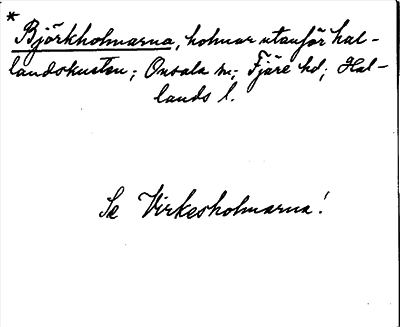 *
Björkholmarna, holmar utanför hal-
landskusten; Onsala sn; Fjäre hd; Hal-
lands l.
Se Virkesholmarna!